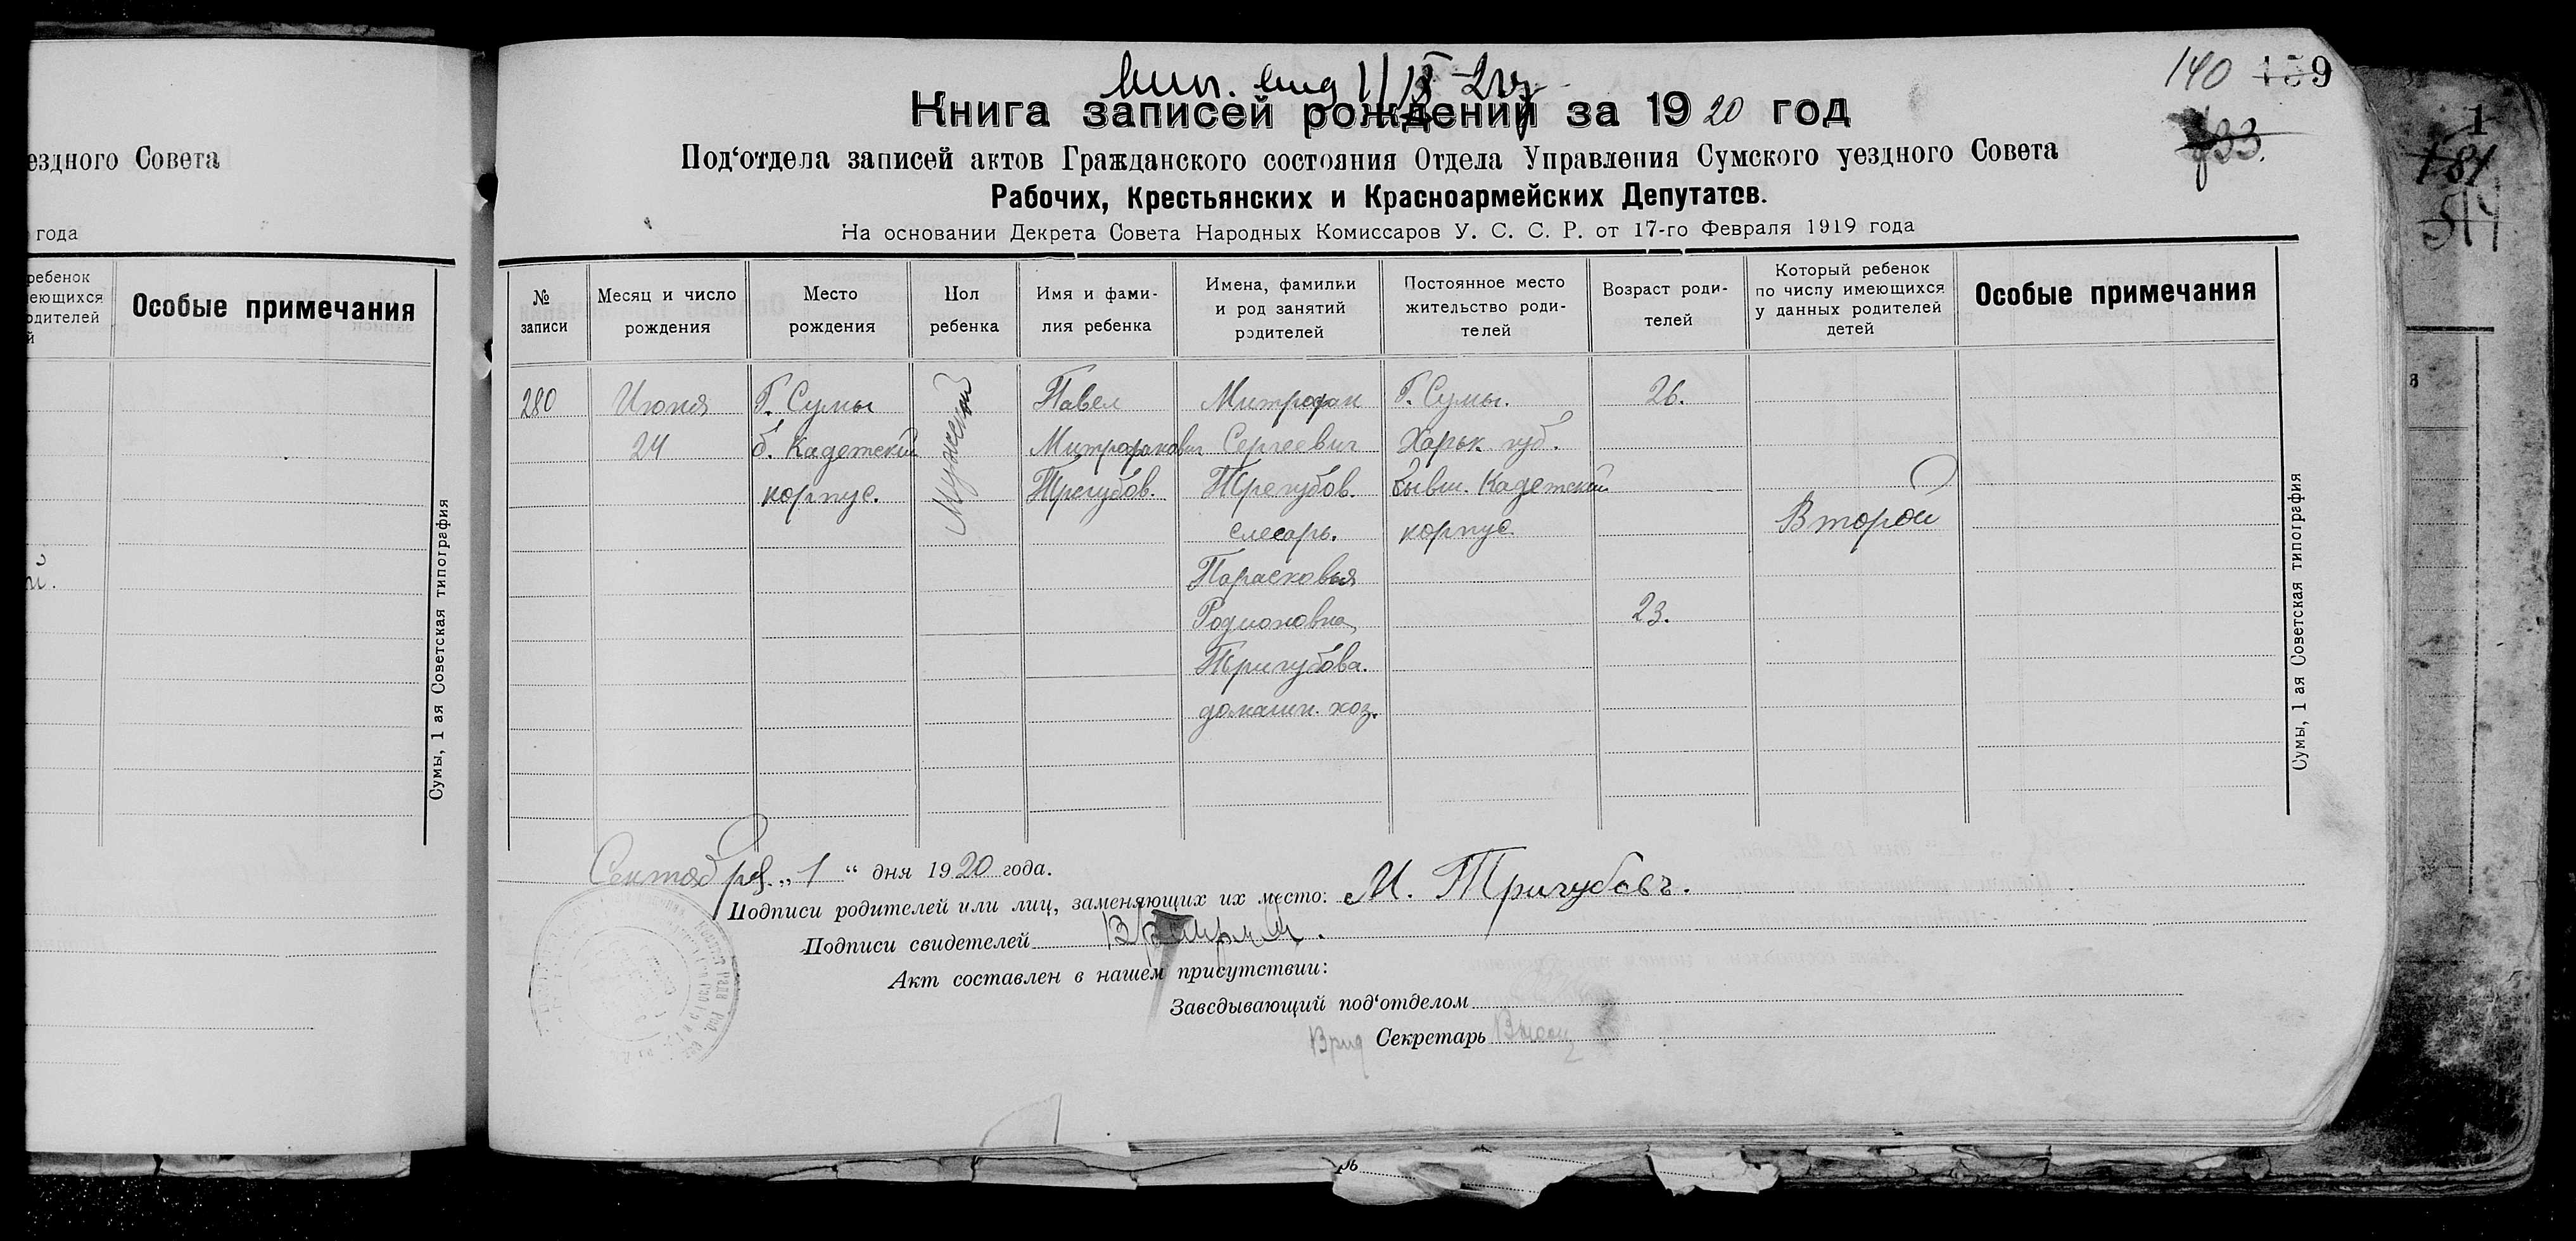 ездного Совета
года
ребенок
еющихся
одителей
й
Особые примечания
й.
Сумы, 1 ая Советская типография
140 139
133.
Книга записей рождений за 1920 год
Под‘отдела записей актов Гражданского состояния Отдела Управления Сумского уездного Совета
Рабочих, Крестьянских и Красноармейских Депутатов.
На основании Декрета Совета Народных Комиссаров У. С. С. Р. от 17-го Февраля 1919 года
№ записи
Месяц и число рождения
Место рождения
Пол ребенка
Имя и фами-
лия ребенка
Имена, фамилии
и род занятий
родителей
Постоянное место
жительство роди-
телей
Возраст роди-
телей
Который ребенок
по числу имеющихся
у данных родителей
детей
Особые примечания
280
Июня
24
Г. Сумы
б. Кадетский
корпус.
Мужской
Павел
Митрофанович
Трегубов.
Митрофан
Сергеевич
Трегубов.
слесарь.
Парасковья
Родионовна
Тригубова.
домашн. хоз.
Г. Сумы.
Харьк. губ.
бывш. Кадетский
корпус
26.
23.
Второй
Сумы, 1 ая Советская типография
Сентября „1“ дня 1920 года.
Подписи родителей или лиц, заменяющих их место: М. Тригубовъ.
Подписи свидетелей
Акт составлен в нашем присутствии:
Заведывающий под‘отделом
Врид Секретарь
1
181
514